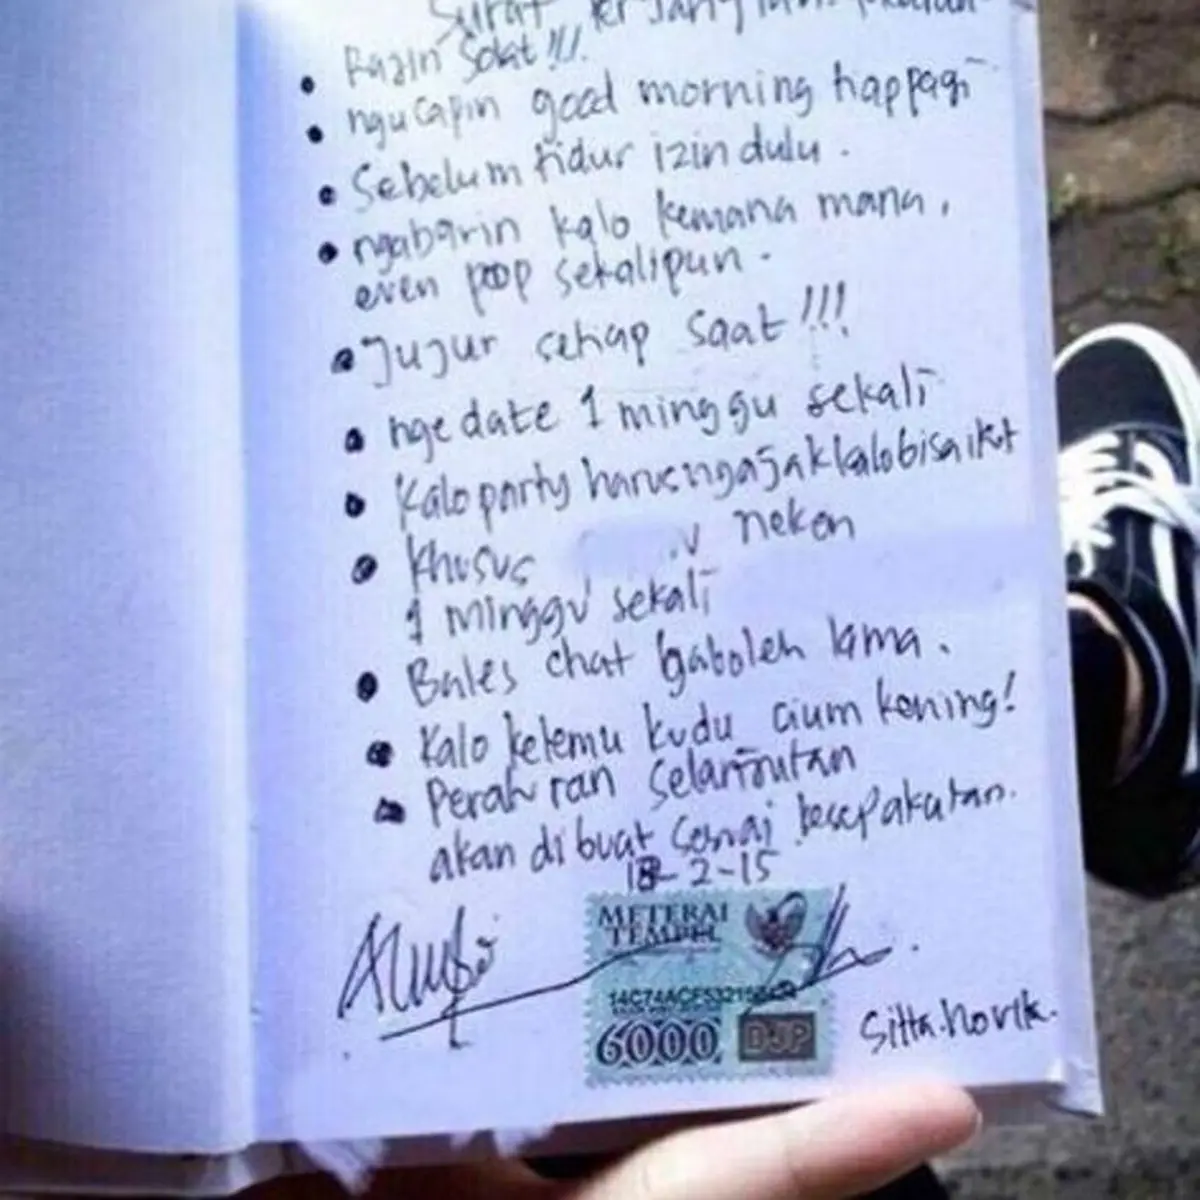 Surat
• Rajin Solat !!!
• ngucapin good morning tiap pagi
• Sebelum tidur izin dulu.
• ngabarin kalo kemana mana,
even poop sekalipun.
• Jujur setiap saat !!!
• ngedate 1 minggu sekali
• Kalo party harus ngajak kalo bisa ikut
• Khusus nekan
1 minggu sekali
• Bales chat gaboleh lama.
• Kalo ketemu kudu cium kening!
• Peraturan selanjutan
akan dibuat sesuai kesepakatan.
18-2-15
METERAI
TEMPEL
6000 DJP
Sitta.Novita.